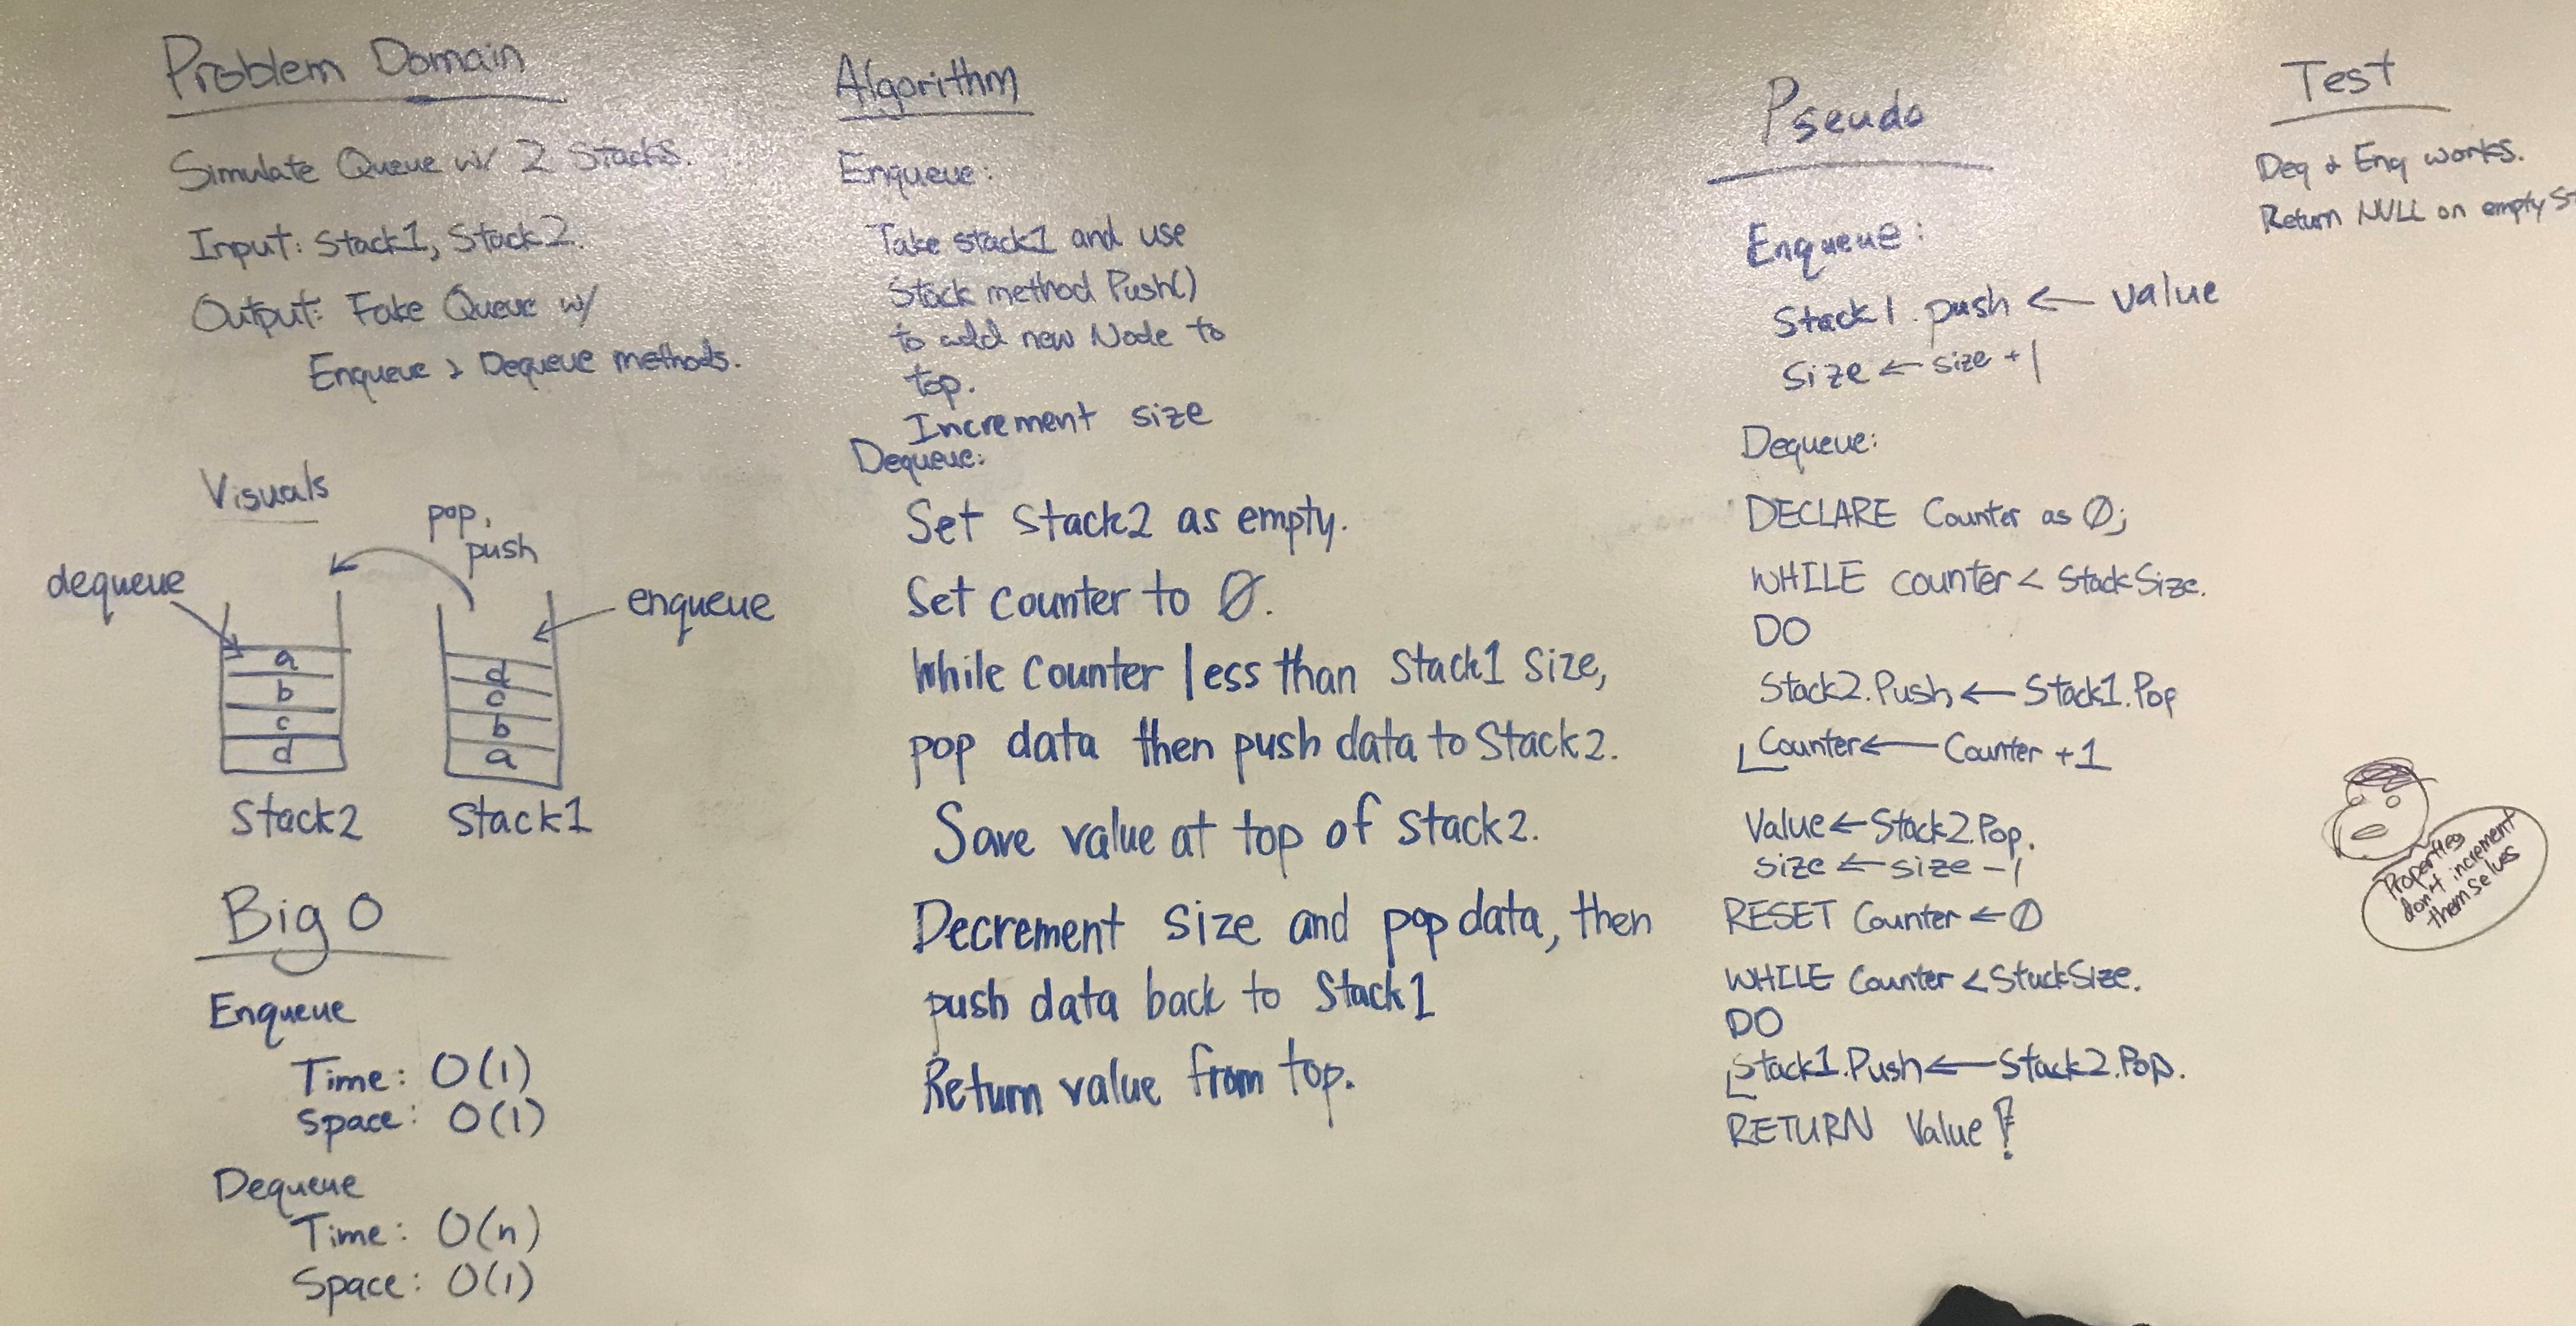 Problem Domain
Simulate Queue w/ 2 Stacks.
Input: Stack1, Stack2.
Output: Fake Queue w/
Enqueue & Dequeue methods.
Visuals
pop,
push
dequeue
enqueue
a
b
c
d
Stack2
d
c
b
a
Stack1
Big O
Enqueue
Time: O(1)
Space: O(1)
Dequeue
Time: O(n)
Space: O(1)
Algorithm
Enqueue:
Take stack1 and use
Stack method Push()
to add new Node to
top.
Increment size
Dequeue:
Set Stack2 as empty.
Set counter to 0.
While counter less than Stack1 size,
pop data then push data to Stack2.
Save value at top of stack2.
Decrement size and pop data, then
push data back to Stack1
Return value from top.
Pseudo
Enqueue:
Stack1.push ← value
Size ← size +1
Dequeue:
DECLARE Counter as 0;
WHILE counter < StackSize.
DO
Stack2.Push ← Stack1.Pop
Counter ← Counter +1
Value ← Stack2.Pop.
size ← size -1
RESET Counter ← 0
WHILE Counter < StackSize.
DO
Stack1.Push ← Stack2.Pop.
RETURN Value!
Test
Deq & Enq works.
Return NULL on empty St
Properties
don't increment
themselves